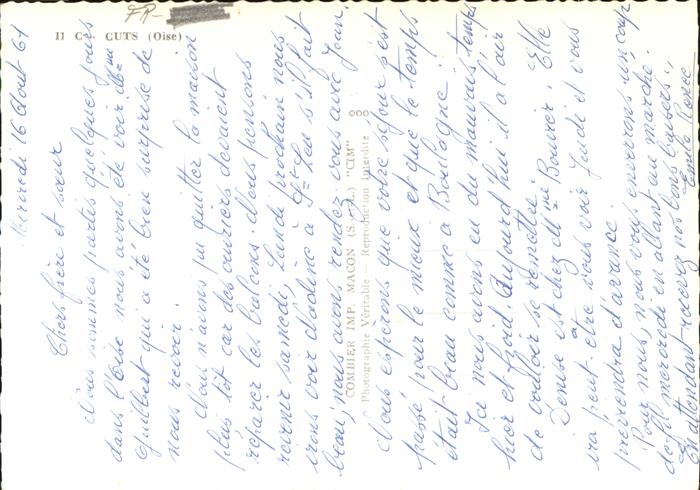 FR-
II C CUTS (Oise)
COMBIER IMP. MACON (S.-&-L.) "CIM"
Photographie Véritable - Reproduction Interdite
Mercredi 16 Aout 61
Chers frère et sœur
Nous sommes partis quelques jours
dans l'Oise nous avons été voir Mme
Guilbert qui a été bien surprise de
nous revoir.
Nous n'avons pu quitter la maison
plus tôt car des ouvriers devaient
réparer les balcons. Nous pensons
revenir samedi, Lundi prochain nous
irons voir Nadine à St Leu s'il fait
beau; nous avons rendez-vous avec Jean.
Nous espérons que votre séjour s'est
passé pour le mieux et que le temps
était beau comme à Boulogne.
Ici nous avons eu du mauvais temps
hier et froid aujourd'hui il a l'air
de vouloir se remettre.
Denise est chez Mme Bourcer. Elle
ira peut-être vous voir Jeudi et vous
previendra d'avance.
Pour nous, nous vous enverrons un coup
de fil mercredi en allant au marché.
En attendant recevez nos bons baisers.